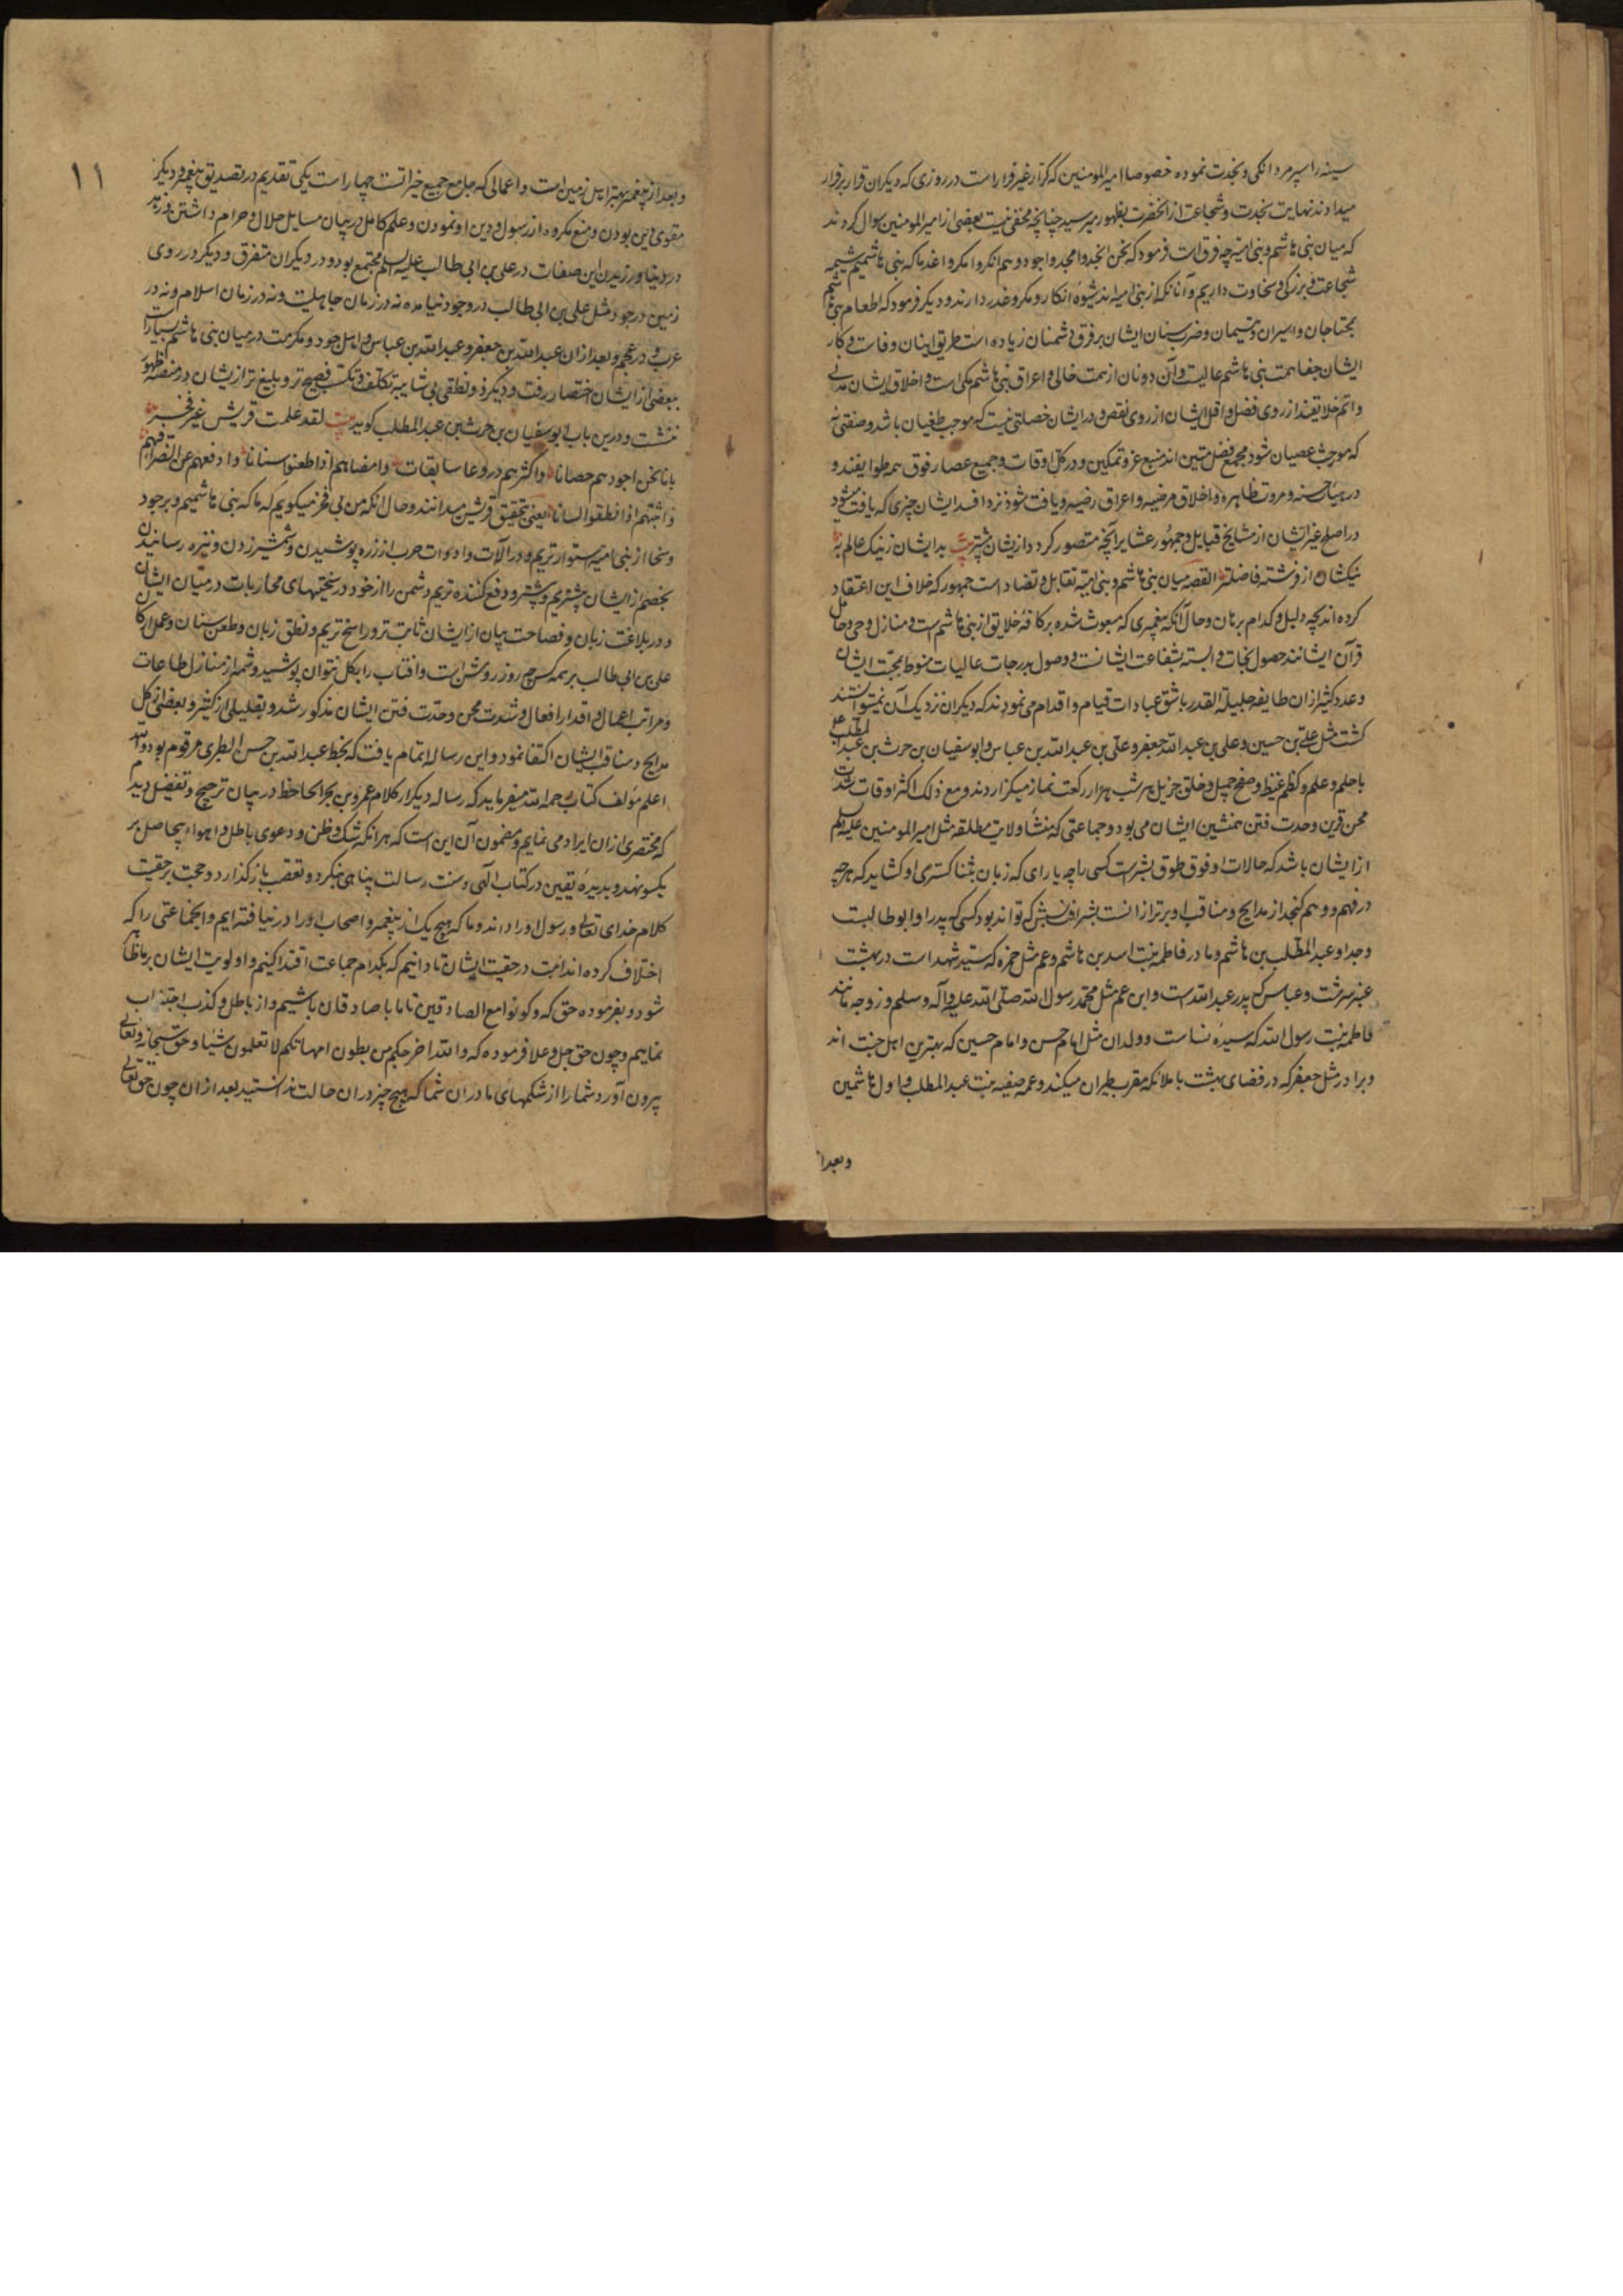 سینه را سپر مردانگی و نجدت نموده خصوصا امیر المومنین که کرار غیر فرار است در روزی که دیگران قرار بر فرار
میدادند نهایت نجدت و شجاعت از انحضرت بظهور میرسید چنانچه مخفی نیست بعضی از امیر المومنین سوال کردند
که میان بنی هاشم و بنی امیه چه فرق است فرمود که نحن انجد و امجد و اجود و هم انکر و امکر و اغدر ما که بنی هاشمیم شیمه
شجاعت و بزرگی و سخاوت داریم و آنانکه از بنی امیه اند شیوه انکار و مکر و غدر دارند و دیگر فرمود که اطعام بنی هاشم
بمحتاجان و اسیران و یتیمان و ضرب سنان ایشان بر فرق دشمنان زیاده است طریق اینان وفاست و کار
ایشان جفا همت بنی هاشم عالیست و آن دونان از همت خالی و اعراق بنی هاشم مکی است و اخلاق ایشان مدنی
و اتم خلایقند از روی فضل و اقل ایشان از روی نقص و در ایشان خصلتی نیست که موجب طغیان باشد و صفتی نه
که مورث عصیان شود مجمع فضل متین اند منبع عز و تمکین و در کل اوقات و جمیع اعصار فوق همه طوایفند و
در هیأت حسنه و مروت ظاهره و اخلاق مرضیه و اعراق رضیه و یافت نشود نزد افسد ایشان چیزی که یافت میشود
در اصلح غیر ایشان از مشایخ قبایل و جمهور عشایر آنچه متصور گردد از یشان بیشتر بیت بد ایشان ز نیک عالم به
نیکشان از فرشته فاضلتر القصه میان بنی هاشم و بنی امیه تقابل و تضاد است جمهور که خلاف این اعتقاد
کرده اند بچه دلیل و کدام برهان و حال آنکه پیغمبری که مبعوث شده بر کافه خلایق از بنی هاشم است و منازل وحی و حامل
قرآن ایشانند حصول نجات وابسته بشفاعت ایشانست و وصول بدرجات عالیات منوط بمحبت ایشان
و عدد کثیر از ان طایفه جلیلة القدر باشق عبادات قیام و اقدام می نمودند که دیگران نزدیک آن نمیتوانستند
گشت مثل علی بن حسین و علی بن عبد الله جعفر و علی بن عبد الله بن عباس و ابو سفیان بن حرث بن عبد المطلب
با حلم و علم و کظم غیظ و صفح جمیل و خلق جزیل هر شب هزار رکعت نماز میگزاردند و مع ذلک اکثر اوقات شدت
محن قرین وحدت فتن همنشین ایشان می بود و جماعتی که منشأ ولایت مطلقه مثل امیر المومنین علیه السلم
از ایشان باشد که حالات او فوق طوق بشرست کسی را چه یارای که زبان بثنا گستری او گشاید که هر چه
در فهم و وهم گنجد از مدایح و مناقب او برتر از انست بشرافت نسبش که تواند بود کسی که پدر او ابو طالبست
و جد او عبد المطلب بن هاشم و مادر فاطمه بنت اسد بن هاشم و عم مثل حمزه که سید شهد است در بهشت
عنبر سرشت و عباس که پدر عبد الله است و ابن عم مثل محمد رسول الله صلی الله علیه و آله و سلم و زوجه مانند
فاطمه بنت رسول الله که سیده نساست و ولدان مثل امام حسن و امام حسین که بهترین اهل جنت اند
و برادر مثل جعفر که در فضای بهشت با ملائکه مقرب طیران میکند و عمه صفیه بنت عبد المطلب و اول هاشمین
و بعد از
۱۱
و بعد از پیغمبر بهتر اهل زمین است و اعمالی که جامع جمیع خیراتست چهار است یکی تقدیم در تصدیق پیغمبر و دیگر
مقوی دین بودن و منع مکروه از رسول و دین او نمودن و علم کامل در بیان مسایل حلال و حرام داشتن و زهد
در دنیا ورزیدن این صفات در علی بن ابی طالب علیه السلم مجتمع بود و در دیگران متفرق و دیگر در روی
زمین در جود مثل علی بن ابی طالب در وجود نیامده نه در زمان جاهلیت و نه در زمان اسلام و نه در
عرب و در عجم و بعد از ان عبد الله بن جعفر و عبد الله بن عباس و اهل جود و مکرمت در میان بنی هاشم بسیارند
ببعضی از ایشان اختصار رفت و دیگر ذو نطقی بی شایبه تکلف و تکسب فصیح تر و بلیغ تر از یشان در منصه ظهور
ننشست و درین باب ابو سفیان بن حرث بن عبد المطلب گوید بیت لقد علمت قریش غیر فخر
بانا نحن اجودهم حصانا و اکثرهم دروعا سابغات و امضاهم اذا طعنوا سنانا و ادفعهم عن الضراء فیهم
و ابینهم اذا نطقوا لسانا یعنی بتحقیق قریش میدانند و حال انکه من بی فخر میگویم که ما که بنی هاشمیم و بر جود
و سخا از بنی امیه استوار تریم و در آلات و ادوات حرب از زره پوشیدن و شمشیر زدن و نیزه رسانیدن
بخصم از ایشان بیشتریم و پیشتر و دفع کننده تریم دشمن را از خود و در سختیهای محاربات در میان ایشان
و در بلاغت زبان و فصاحت بیان از ایشان ثابت تر و راسخ تریم و نطق زبان و طعن سنان و عمل ارکان
علی بن ابی طالب بر همه کس چو روز روشن است و افتاب را بگل نتوان پوشید و شمه از منازل طاعات
و مراتب اعمال و اقدار افعال و شدت محن و حدت فتن ایشان مذکور شد و بقلیلی از کثیر و بعضی از کل
مدایح و مناقب ایشان اکتفا نمود و این رساله اتمام یافت که بخط عبد الله بن حسن الطبری مرقوم بود و الله
اعلم مؤلف کتاب رحمه الله میفرماید که رساله دیگر از کلام عمرو بن بحر الجاحظ در بیان ترجیح و تفضیل دیدم
که مختصری از ان ایراد می نمایم و مضمون آن این است که هر انکه شک و ظن و دعوی باطل و اهواء بیحاصل بر
یکسو نهد و بدیده یقین در کتاب الهی و سنت رسالت پناهی بنگرد و تعصب باز گذارد و حجت بر حقیت
کلام خدای تعالی و رسول او راداند و ما که هیچ یک از پیغمبر و اصحاب او را در نیافته ایم و انجماعتی را که
اختلاف کرده اند امت در حقیت ایشان تا دانیم که بکدام جماعت اقتدا کنیم و اولویت ایشان بر ما ظاهر
شود و بفرموده حق که و کونوا مع الصادقین تا ما با صادقان باشیم و از باطل و کذب اجتناب
نماییم و چون حق جل و علا فرموده که و الله اخرجکم من بطون امهاتکم لا تعلمون شیئا و حق سبحانه و تعالی
بیرون آورد شما را از شکمهای مادران شما که هیچ چیز در ان حالت ندانستید بعد از ان چون حق تعالی